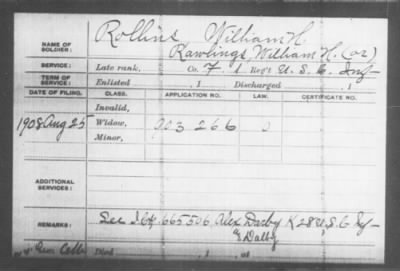 Rollins William H.
NAME OF SOLDIER: Rawlings, William H. (or)
SERVICE: Late rank, Co. F, 1 Reg't U.S.C. Inf
TERM OF SERVICE: Enlisted , 1 Discharged , 1
DATE OF FILING. CLASS. APPLICATION NO. LAW. CERTIFICATE NO.
Invalid,
1908 Aug 25 Widow, 903 266
Minor,
ADDITIONAL SERVICES:
REMARKS: See I Ctf. 665506, Alex Darby K 28 U.S.C Inf
Dalby
Died , 1 , at